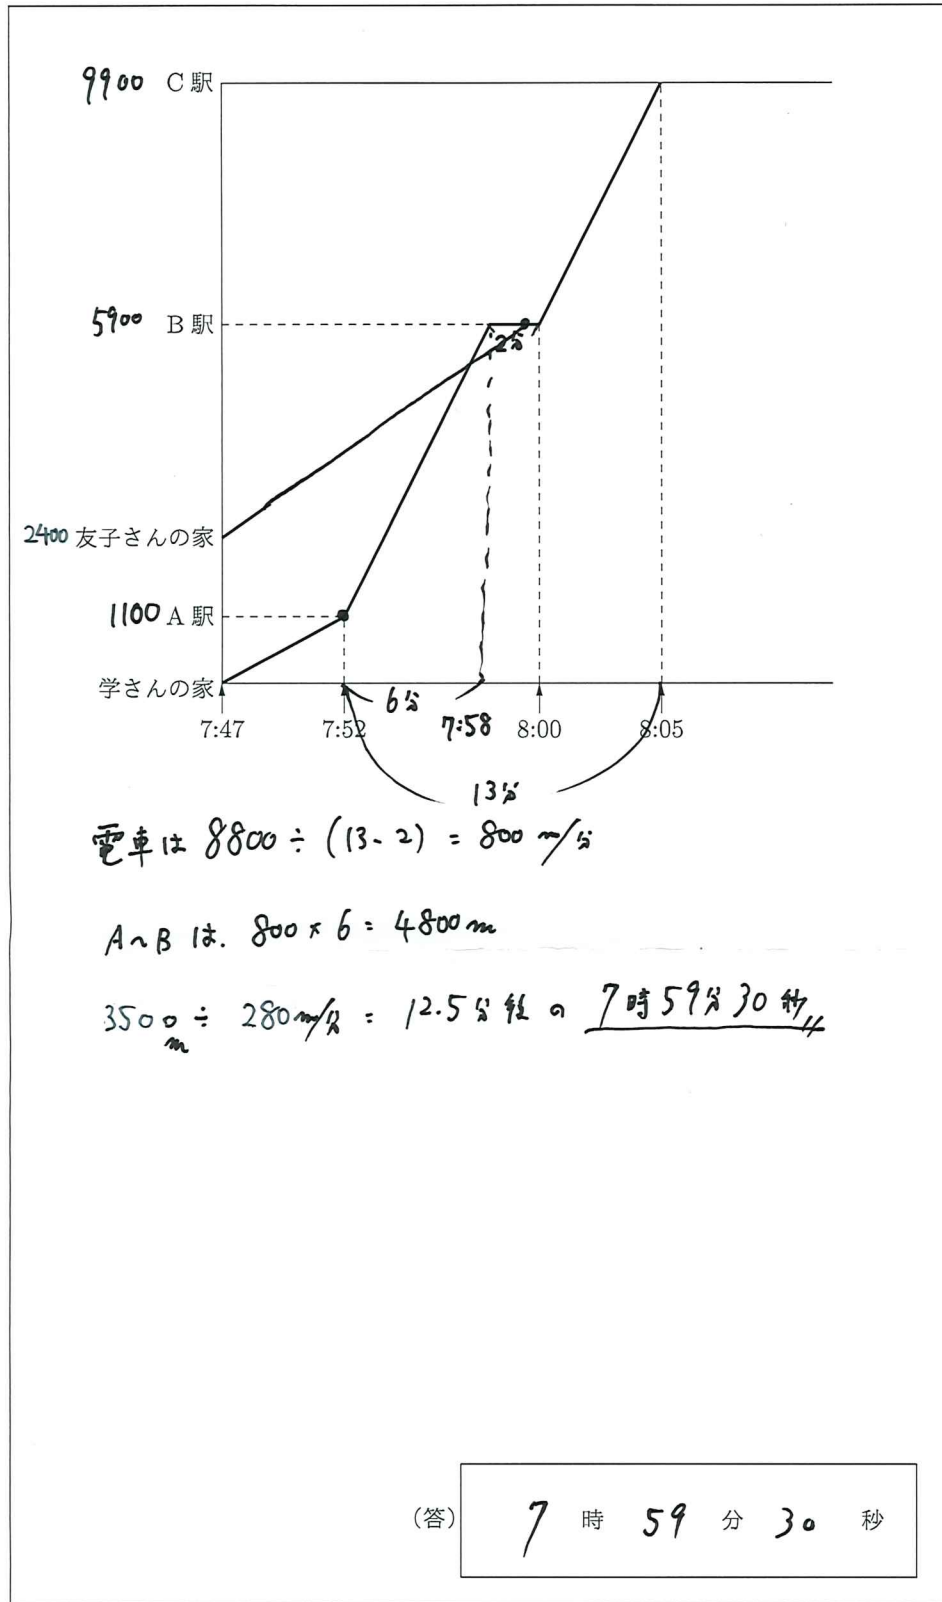 9900 C駅
5900 B駅
2分
2400 友子さんの家
1100 A駅
学さんの家
6分
7:47 7:52 7:58 8:00 8:05
13分
電車は 8800÷(13-2)=800m/分
A~Bは. 800×6=4800m
3500m÷280m/分=12.5分後の 7時59分30秒
(答) 7時59分30秒